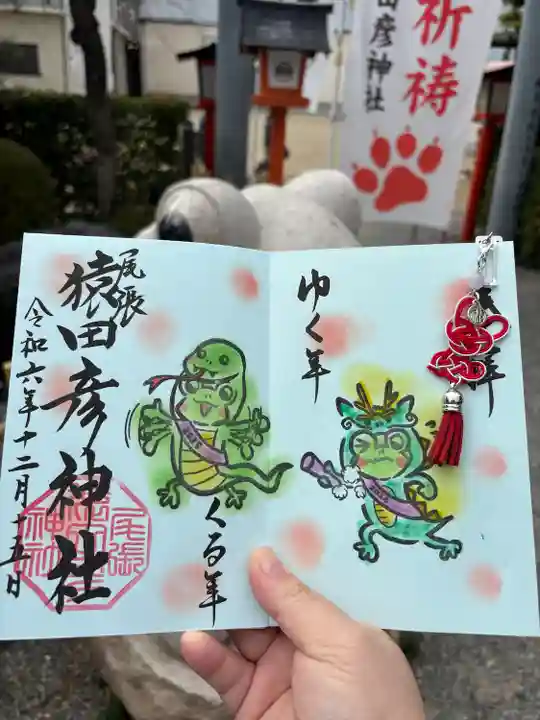 祈祷
田彦神社
奉拝
ゆく年
くる年
尾張
猿田彦神社
令和六年十二月十五日